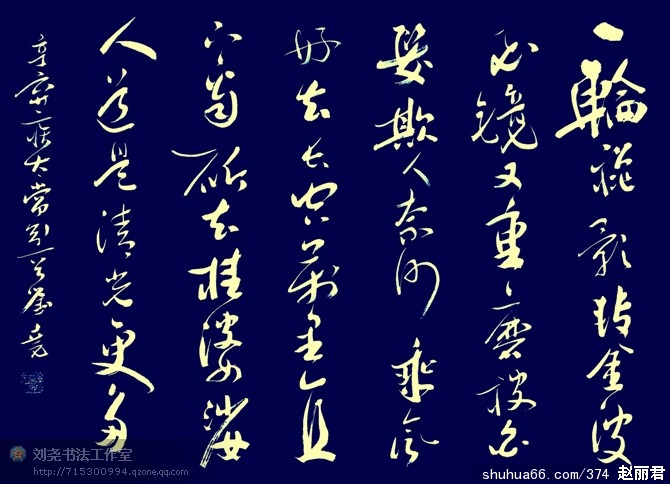 一輪秋影转金波
飞镜又重磨被白
髮欺人奈何乘风
好去长空万里直
下看斫去桂婆娑
人道是清光更多
辛棄疾太常引一首劉堯
刘尧书法工作室
http://715300994.qzone.qq.com
shuhua66.com/374 赵丽君